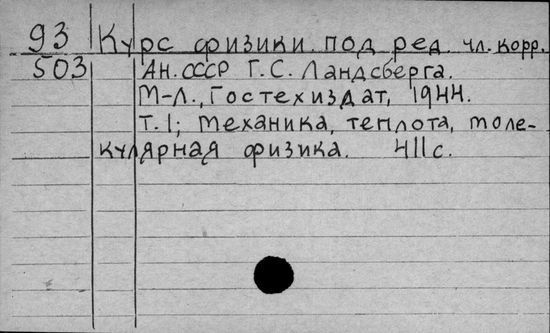 93 Курс физики под ред. чл. корр.
503 АН.СССР Г.С. Ландсберга.
М-Л., Гостехиздат, 1944.
Т.1; механика, теплота, моле-
кулярная физика. 411с.